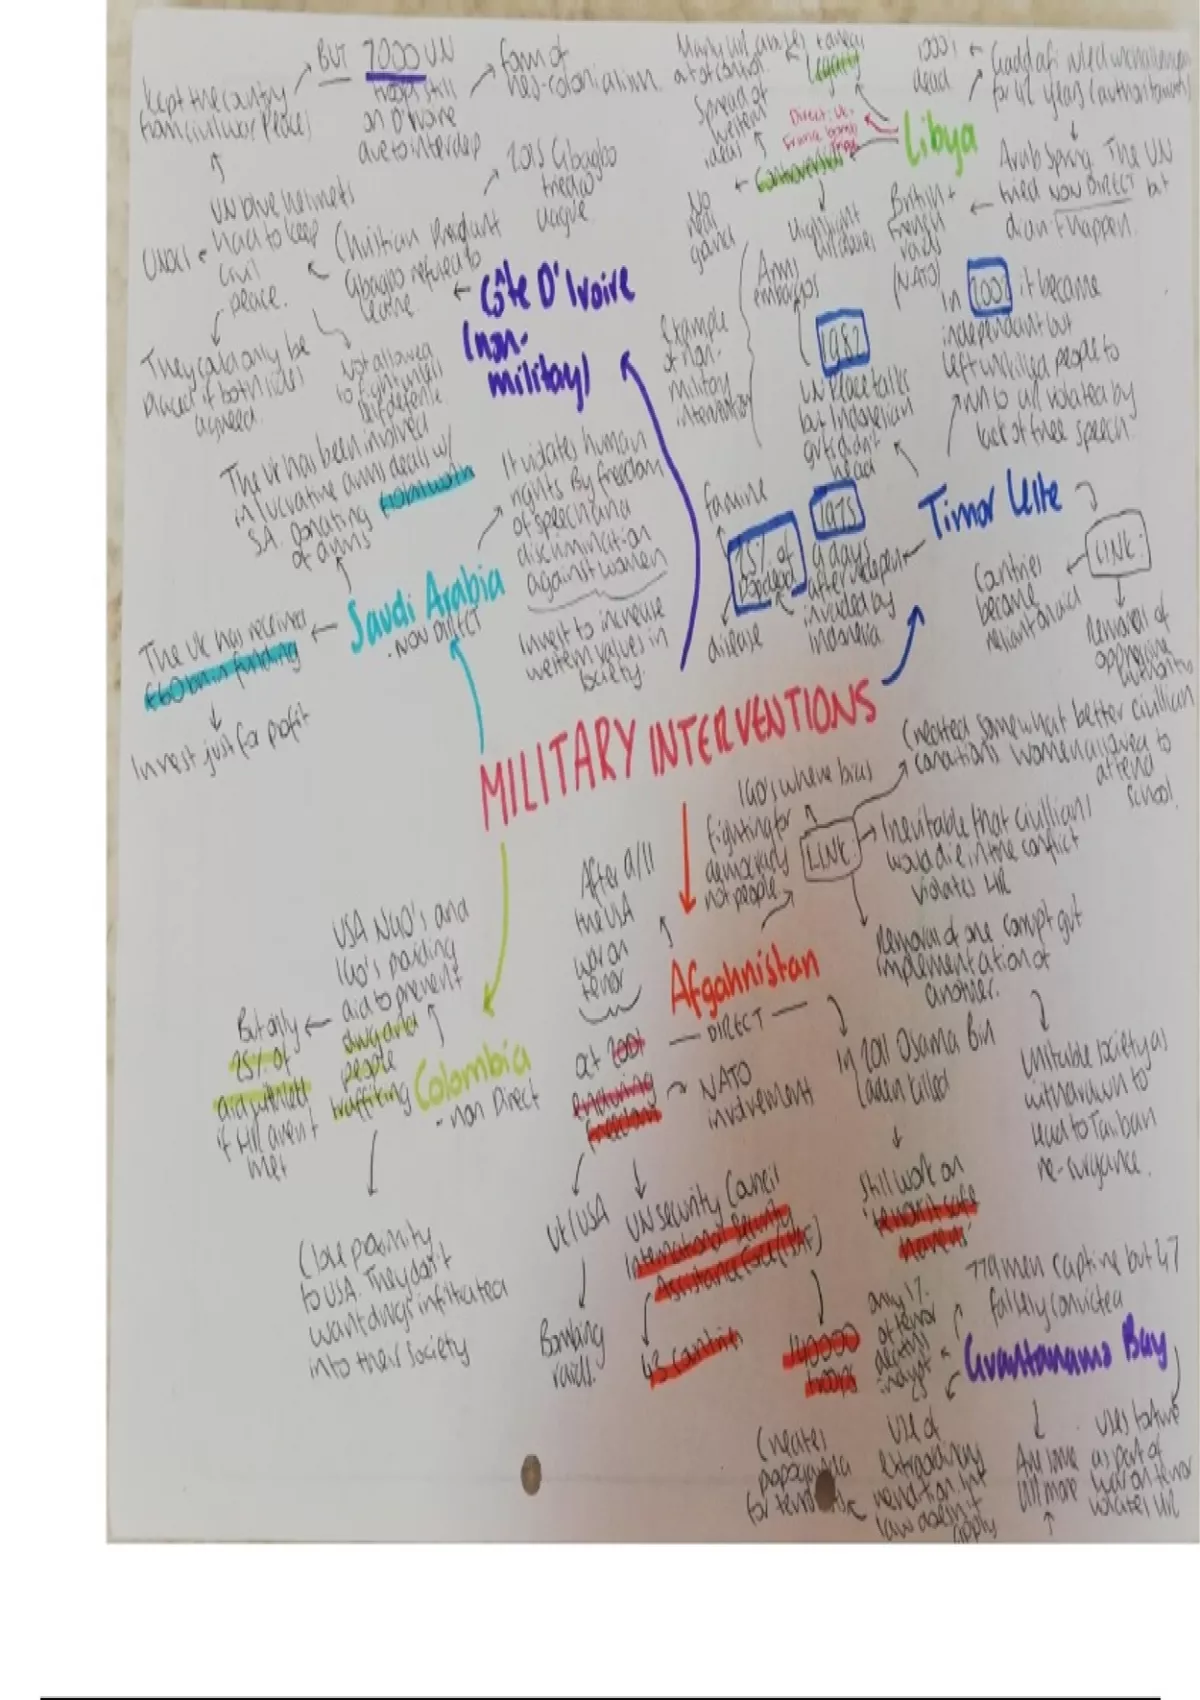 MILITARY INTERVENTIONS
Côte D'Ivoire
(non-
military)
BUT 7000 UN
troops still
on D'Ivoire
form of
neo-colonialism.
kept the country
from civil war
UN blue helmets
had to keep
civil
peace.
Gbagbo refused to
leave
2015 Gbagbo
tried @
They could only be
placed if both sides
agreed.
not allowed
to fight unless
self defense
Libya
Legality
Many
out of control.
Spread of
western
ideals
Direct: UK +
France bombs
controversial
NO
real
gains
Highlight
1000's
dead
Gaddafi ruled unchallenged
for 42 years (authoritarian)
Arab Spring. The UN
tried NON DIRECT but
didn't happen.
British +
French
raids
(NATO)
Timor Leste
In 2002 it became
independent but
left unskilled people to
lack of free speech.
1982
UN Peace talks
but Indonesian
govt didn't
head
Arms
embargos
Example
of non-
military
intervention
1975
9 days
after indepen
invaded by
Indonesia
25% of
pop dead
famine
disease
LINK:
Countries
become
reliant on aid
Removal of
oppressive
Saudi Arabia
- NON DIRECT
The UK has been involved
in lucrative arms deals w/
SA. Donating
of arms
It violates human
rights by freedom
of speech and
discrimination
against women
Invest to increase
western values in
society.
The UK has received
£60bn in funding
Invest just for profit
Colombia
- non Direct
USA NGO's and
IGO's
aid to prevent
drug and
people
trafficking
But only
25% of
if HR aren't
met
Close proximity
to USA. They don't
want drugs infiltrated
into their society
Afgahnistan
DIRECT
After 9/11
the USA
war on
terror
Oct 2001
enduring
freedom
NATO
involvement
UK/USA
Bombing
raids.
UN Security Council
International Security
Assistance Force (ISAF)
43 countries
140000
troops
In 2011 Osama Bin
Laden killed
still work on
'terrorist safe
havens'
LINK:
IGO's where bias
fighting for
democracy
not people
Created somewhat better civillian
conditions women allowed to
attend
school.
Inevitable that civillians
would die in the conflict
violates HR
Removal of one corrupt gvt
implementation of
another.
Unstable society as
withdrawn to
lead to Taliban
re-surgance.
Guantanamo Bay
779 men captive but 47
falsely convicted
only 1%
of terror
Use of
extraordinary
rendition. Int
law doesn't
apply
Creates
propaganda
for terrorists
uses torture
as part of
war on terror
violates HR